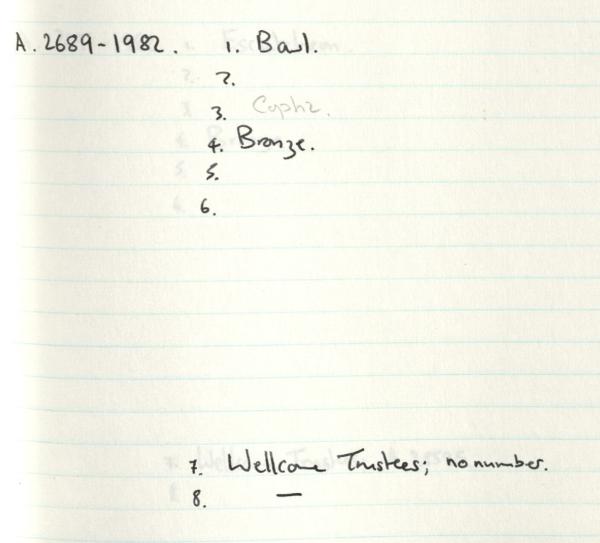 A. 2689-1982. 1. Bowl.
2.
3. Copht.
4. Bronze.
5.
6.
7. Wellcome Trustees; no number.
8. —